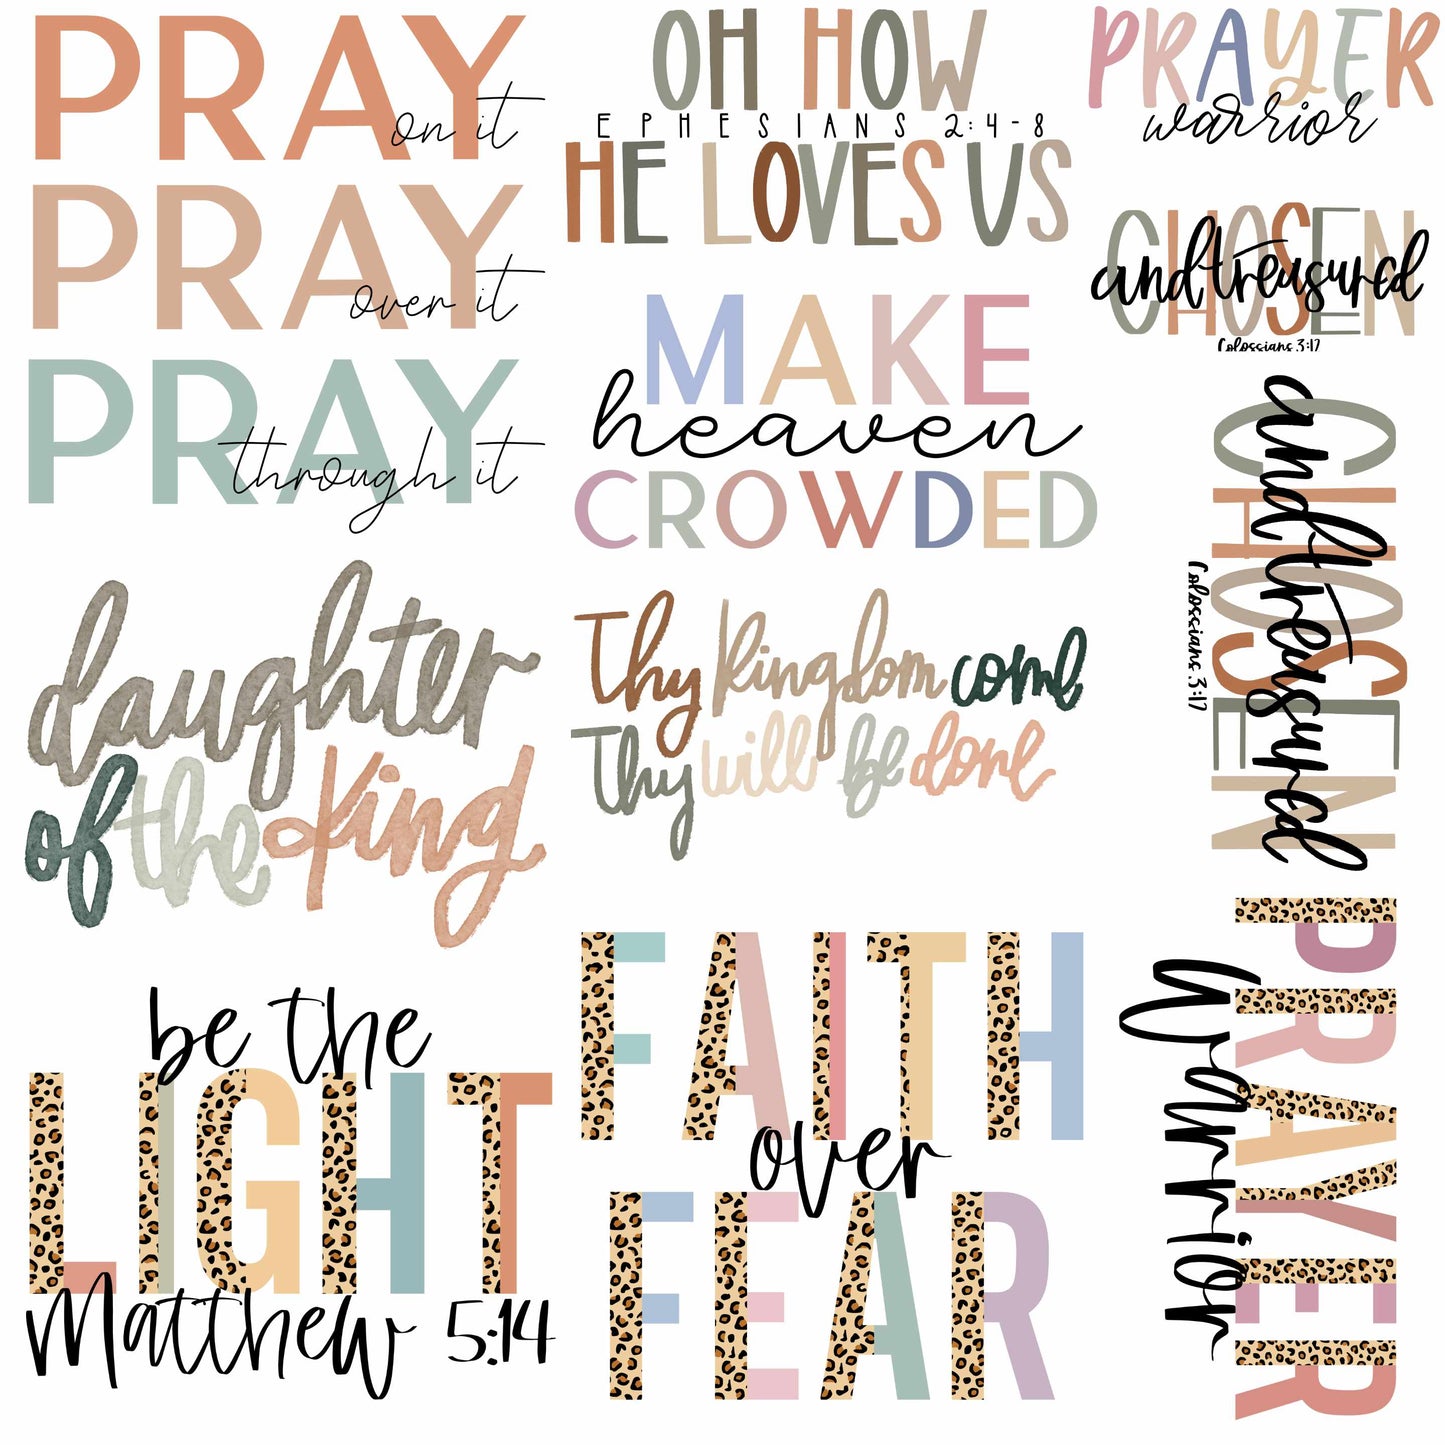 PRAY
on it
PRAY
over it
PRAY
through it
OH HOW
EPHESIANS 2:4-8
HE LOVES US
PRAYER
warrior
CHOSEN
and treasured
Colossians 3:17
MAKE
heaven
CROWDED
CHOSEN
and treasured
Colossians 3:17
daughter
of the King
Thy kingdom come
Thy will be done
be the
LIGHT
Matthew 5:14
FAITH
over
FEAR
PRAYER
Warrior